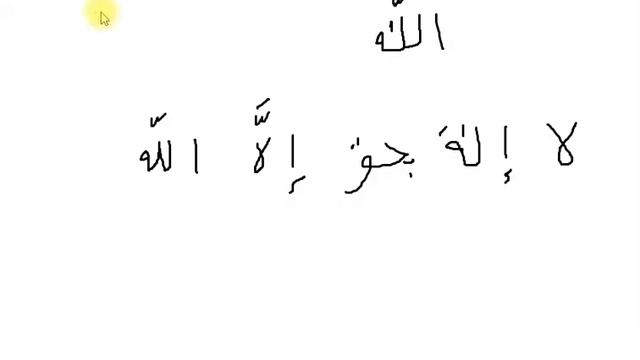 اللّه
لا إلهَ بحق إلَّا اللّه